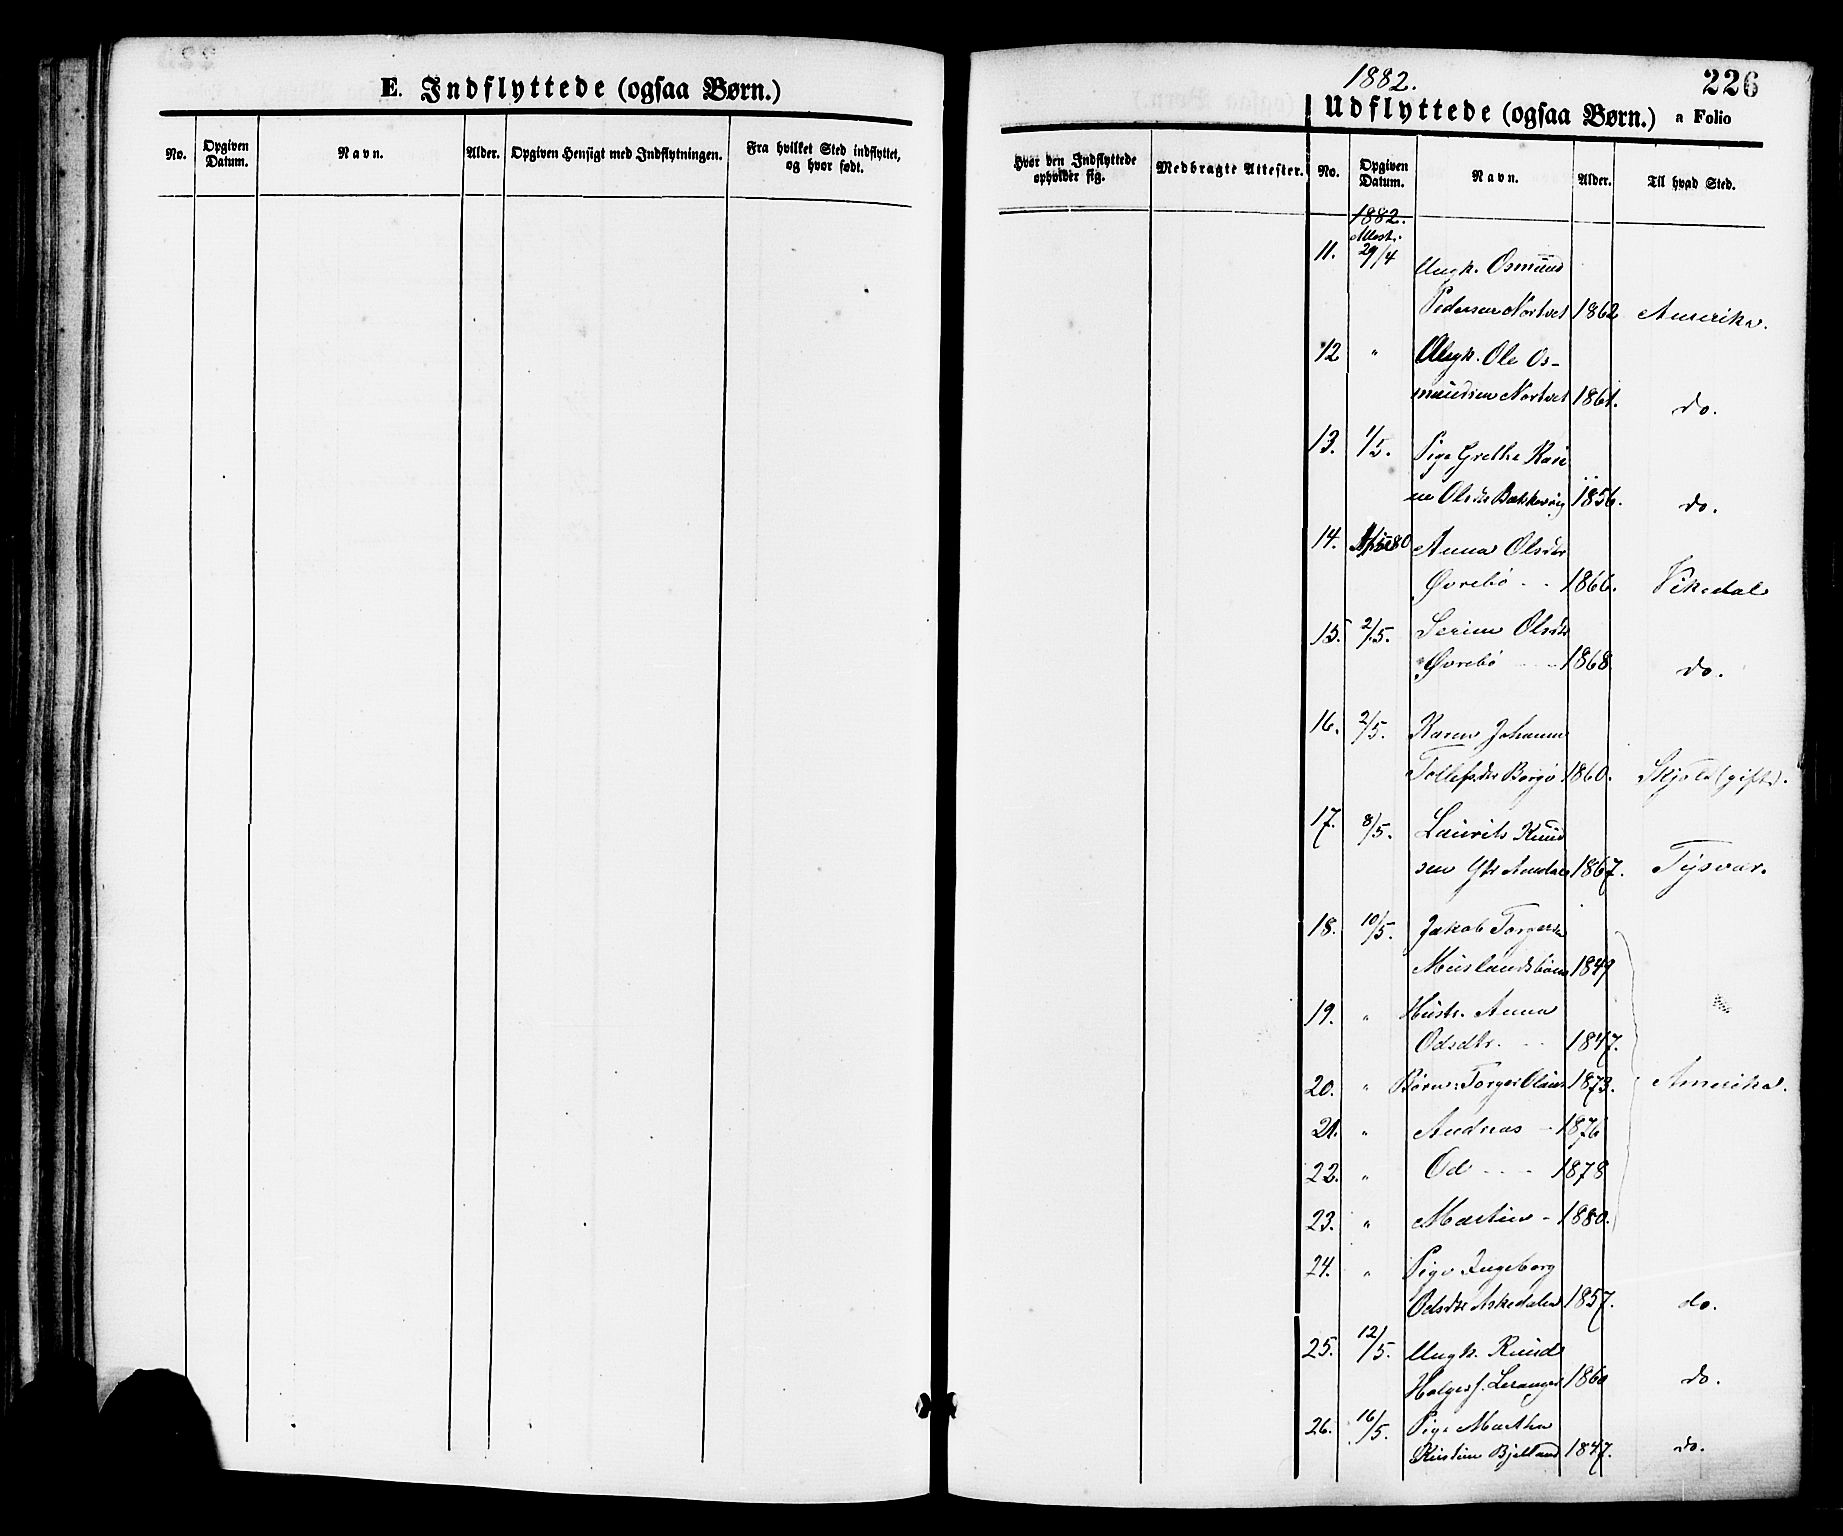 E. Indflyttede (ogsaa Børn.)
No.
Opgiven Datum.
Navn.
Alder.
Opgiven Hensigt med Indflytningen.
Fra hvilket Sted indflyttet, og hvor født.
1882.
226
Udflyttede (ogsaa Børn.) a Folio
Hvor den Indflyttede opholder sig.
Medbragte Attester.
No.
Opgiven Datum.
Navn.
Alder.
Til hvad Sted.
1882.
Attest.
11. 29/4 Ungk. Osmund
Pedersen Nortvet 1862 Amerika.
12 " Ungk. Ole Os-
mundsen Nortvet 1861. do.
13. 1/5. Pige Grethe Kari
ne Olsdtr Bakkevig 1856. do.
14. Anna Olsdtr
Øvrebö 1866. Vikedal
15. 2/5. Serine Olsdtr
Øvrebö 1868 do.
16. 2/5. Karen Johanne
Tollefsdtr Borgö 1860. Skjold (gift).
17. 8/5. Laurits Knud
sen 1867. Tysvær.
18. 10/5. Jakob Torgersen
1849
19. " Hustr. Anna
Odsdtr. 1847.
20. " Børn: Torger Olaus 1873. Amerika.
21. " Andreas - 1876
22. " Od - - - 1878
23. " Martin - 1880.
24. " Pige Ingeborg
Odsdtr Askedalen 1857. do.
25. 12/5. Ungk. Knud
Holgers. Leranger 1860 do.
26. 16/5. Pige Martha
Kristine Bjelland 1847. do.